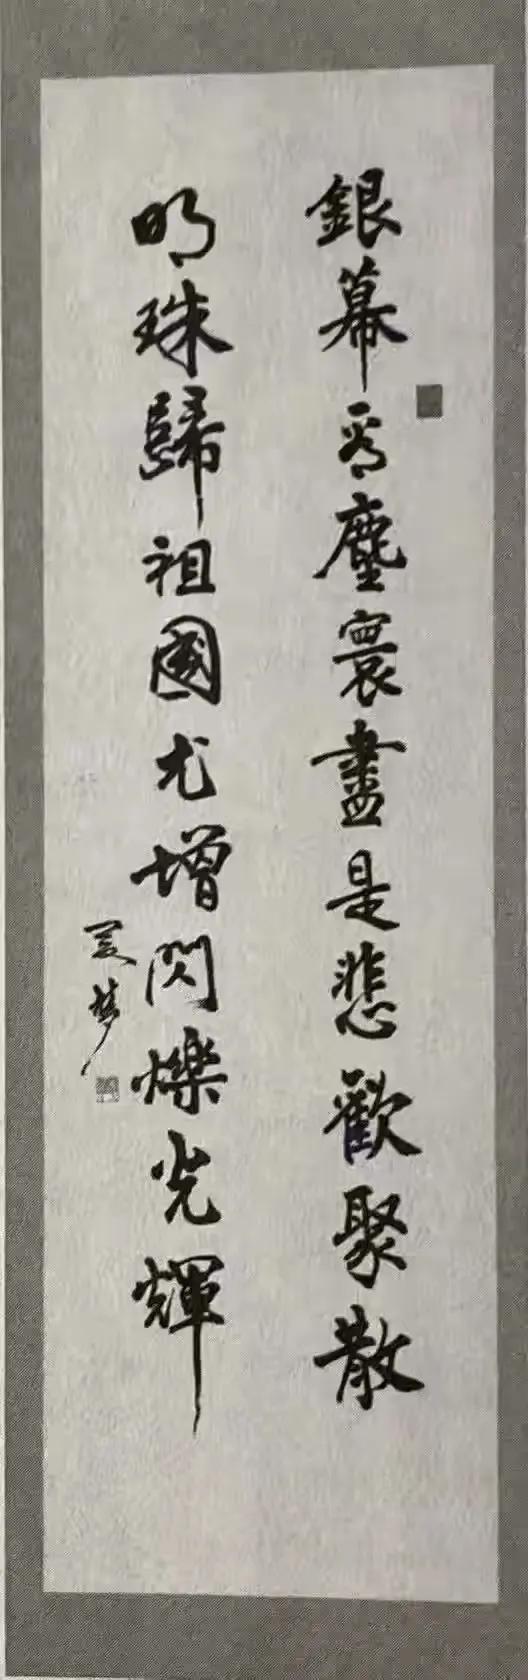 銀幕看塵寰盡是悲歡聚散
明珠歸祖國尤增閃爍光輝
夏梦